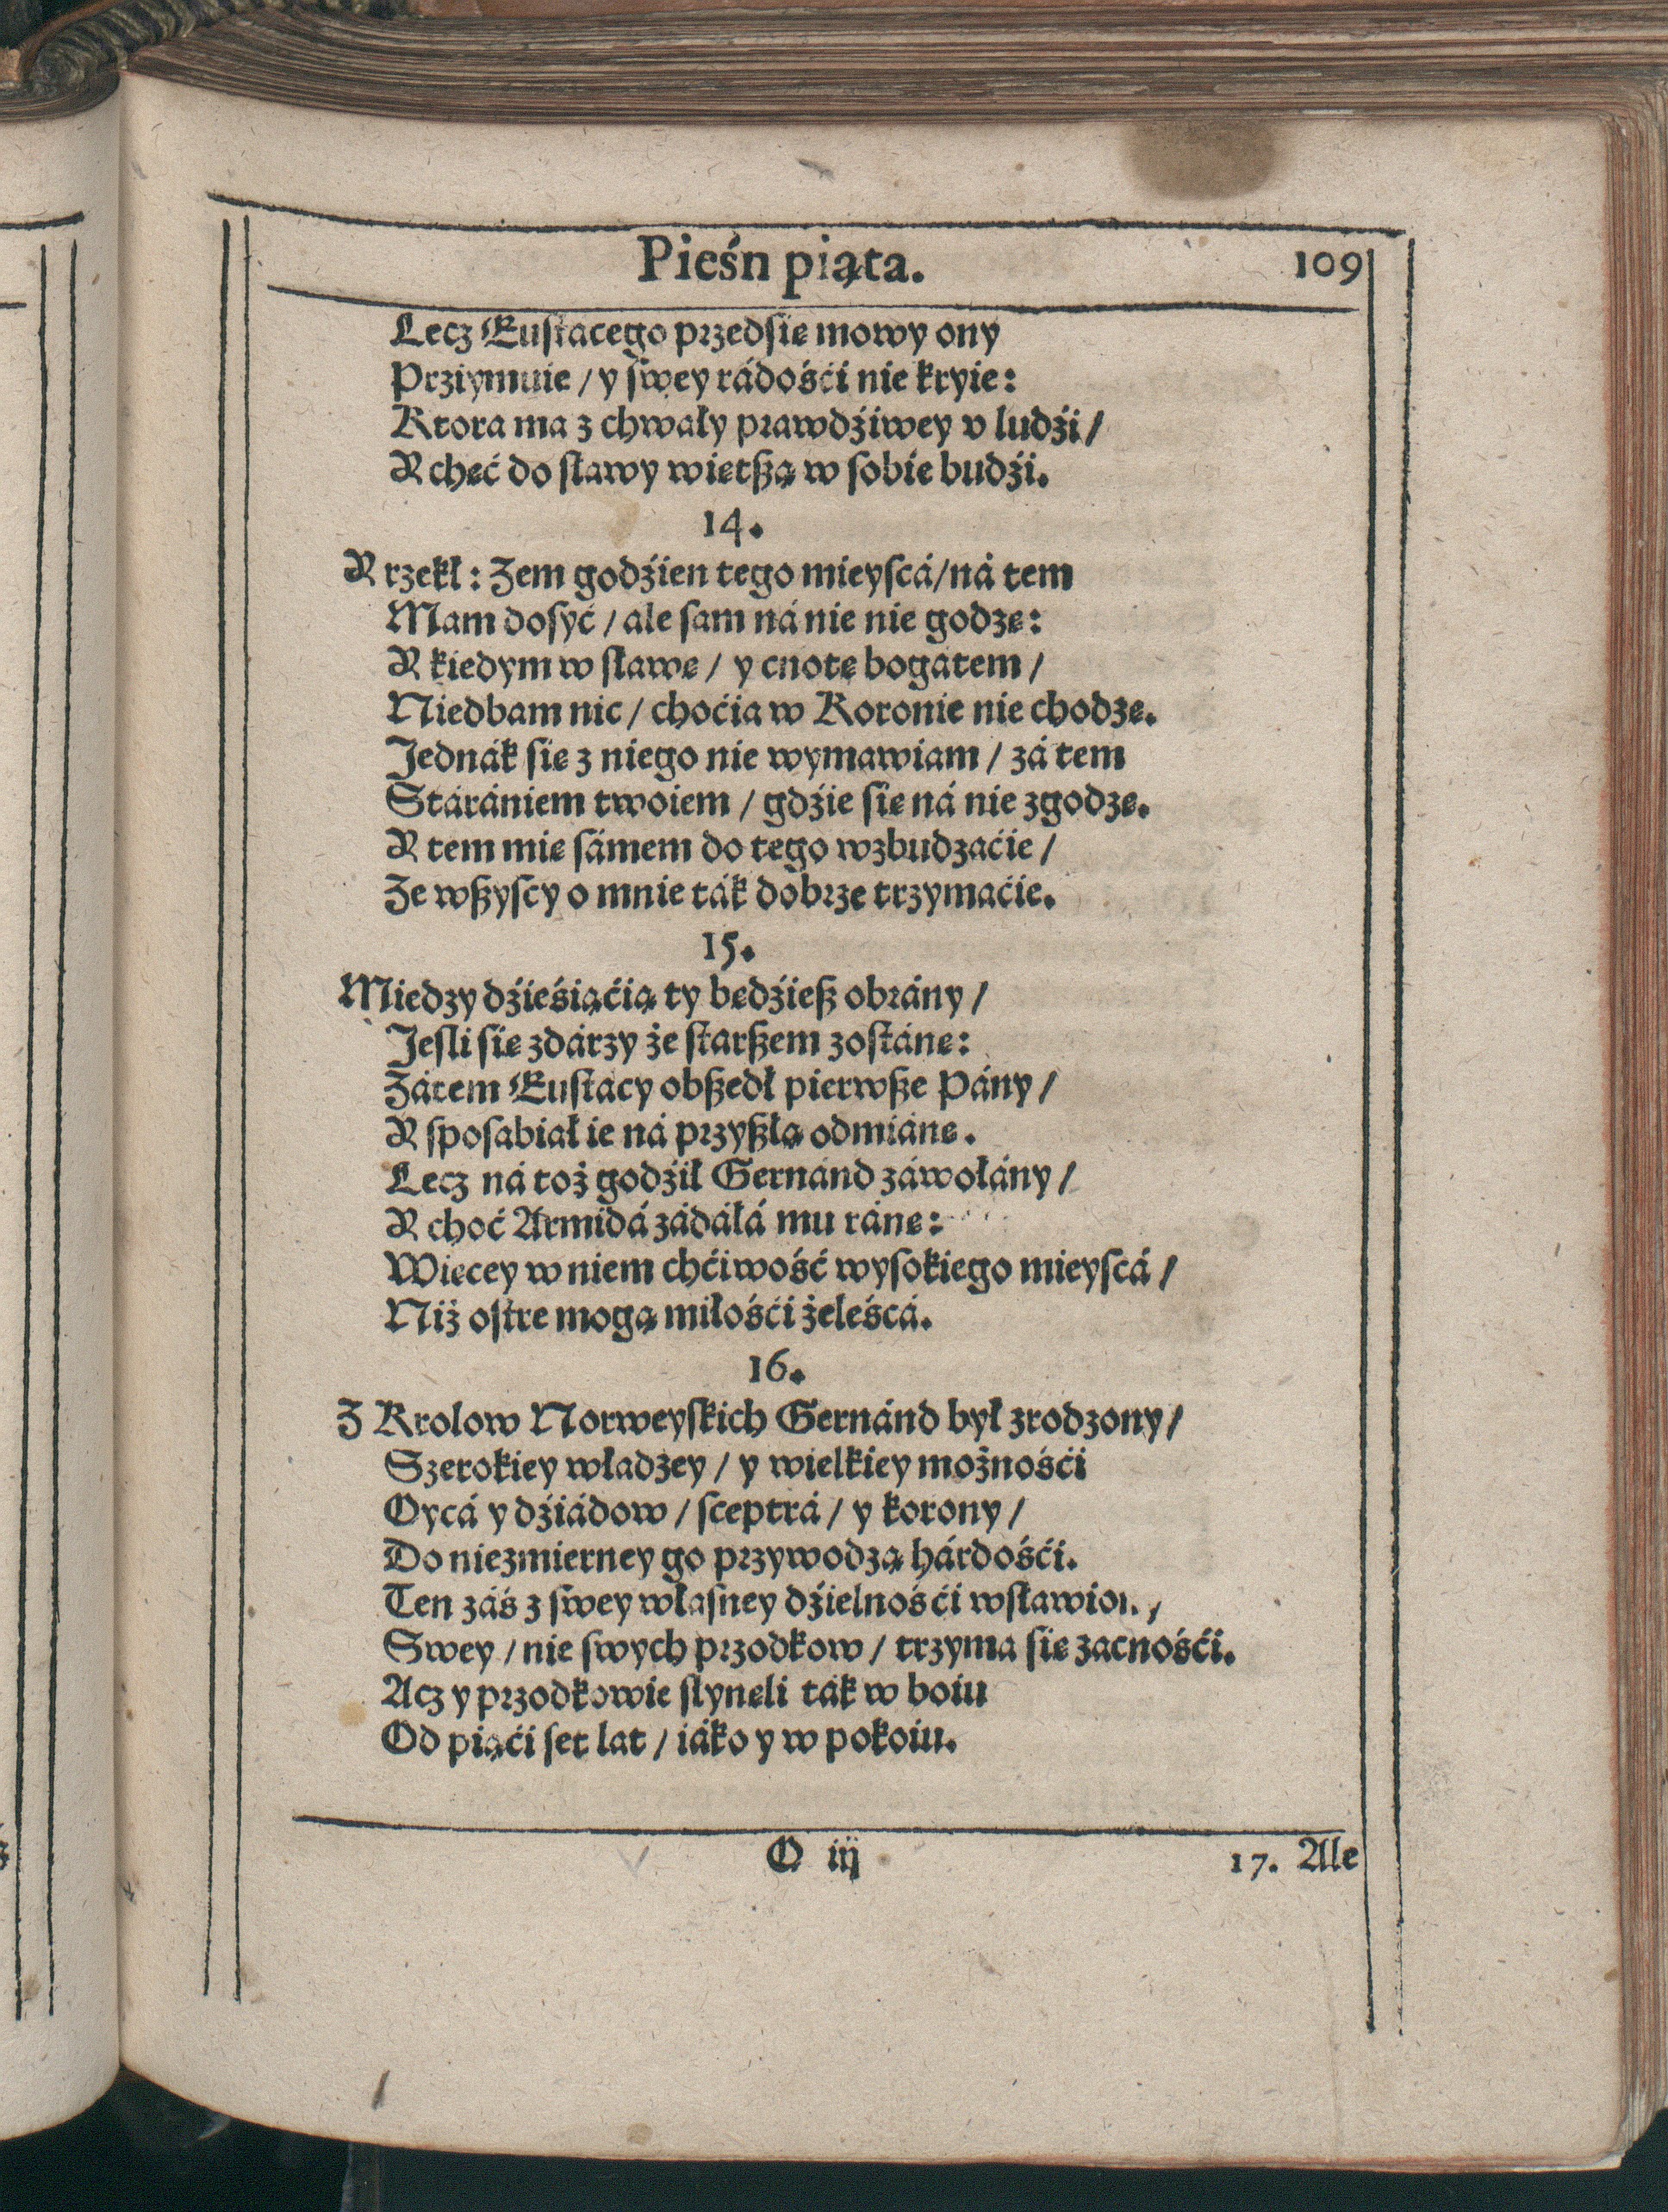 Pieśn piąta. 109
Lecz Eustacego przedsię mowy ony
Prziymuie / y swey rádośći nie kryie:
Ktora ma z chwały prawdźiwey v ludźi /
Y chęć do sławy więtszą w sobie budźi.
14.
Y rzekł: Zem godźien tego mieyscá / ná tem
Mam dosyć / ale sam ná nie nie godzę:
Y kiedym w sławę / y cnotę bogatem /
Niedbam nic / choćia w Koronie nie chodzę.
Jednák się z niego nie wymawiam / zá tem
Stárániem twoiem / gdźie się ná nie zgodzę.
Y tem mię sámem do tego wzbudzaćie /
Ze wszyscy o mnie ták dobrze trzymaćie.
15.
Miedzy dźieśiąćią ty będźiesz obrány /
Jesli się zdárzy że starszem zostánę:
Zátem Eustacy obszedł pierwsze Pány /
Y sposabiał ie ná przyszłą odmiánę.
Lecz ná toż godźił Gernánd záwołány /
Y choć Armidá zádáłá mu ránę:
Więcey w niem chćiwość wysokiego mieyscá /
Niż ostre mogą miłośći żeleścá.
16.
Z Krolow Norweyskich Gernánd był zrodzony /
Szerokiey władzey / y wielkiey możnośći
Oycá y dźiádow / sceptrá / y korony /
Do niezmierney go przywodzą hárdośći.
Ten záś z swey własney dźielnośći wsławion. /
Swey / nie swych przodkow / trzyma się zacnośći.
Acz y przodkowie słynęli ták w boiu
Od piąći set lat / iáko y w pokoiu.
O iij 17. Ale